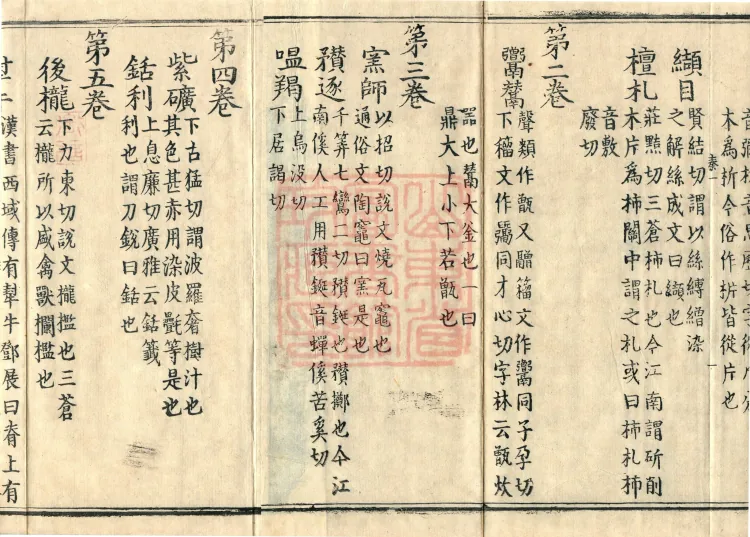 木為折今俗作折皆從片也
卷一
纈目
賢結切謂以絲縛繒染
之解絲成文曰纈也
檀札
莊黠切三蒼柿札也今江南謂斫削
木片為柿關中謂之札或曰柿札柿
音敷
廢切
第二卷
鬻鬵
聲類作甑又䰝籀文作鬻同子孕切
下籀文作䰞同才心切字林云甑炊
器也鬵大釜也一曰
鼎大上小下若甑也
第三卷
窯師
以招切說文燒瓦竈也
通俗文陶竈曰窯是也
䂎逐
千筭七鸞二切䂎鋋也䂎擲也今江
南傒人工用䂎鋋音蟬傒苦奚切
嗢羯
上烏没切
下居謁切
第四卷
紫礦
下古猛切謂波羅奢樹汁也
其色甚赤用染皮㲲等是也
銛利
上息廉切廣雅云銛籤
利也謂刀銳曰銛也
第五卷
後櫳
下力東切說文櫳檻也三蒼
云櫳所以盛禽獸欄檻也
漢書西域傳有犎牛鄧展曰脊上有